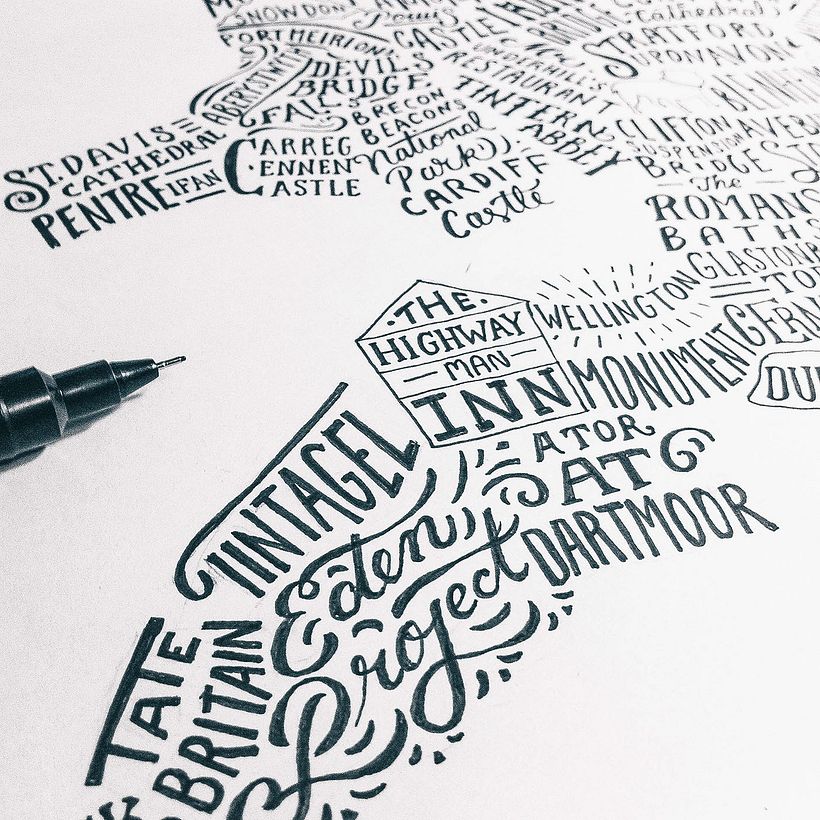 SNOWDON
PORTMEIRION
ABERYSTWITH
DEVIL'S
BRIDGE
FALLS
CASTLE
BRECON
BEACONS
National
Park
CARDIFF
Castle
ST. DAVIS
CATHEDRAL
PENTRE IFAN
CARREG
CENNEN
CASTLE
RESTAURANT
TINTERN
ABBEY
Cathedral
STRATFORD
UPON AVON
BRIDGE
CLIFTON
SUSPENSION
BRIDGE
The
ROMAN
BATH
GLASTON
TO
WELLINGTON
MONUMENT
CERN
DU
·THE·
HIGHWAY
MAN
INN
ATOR
AT
DARTMOOR
TINTAGEL
Eden
Project
TATE
BRITAIN